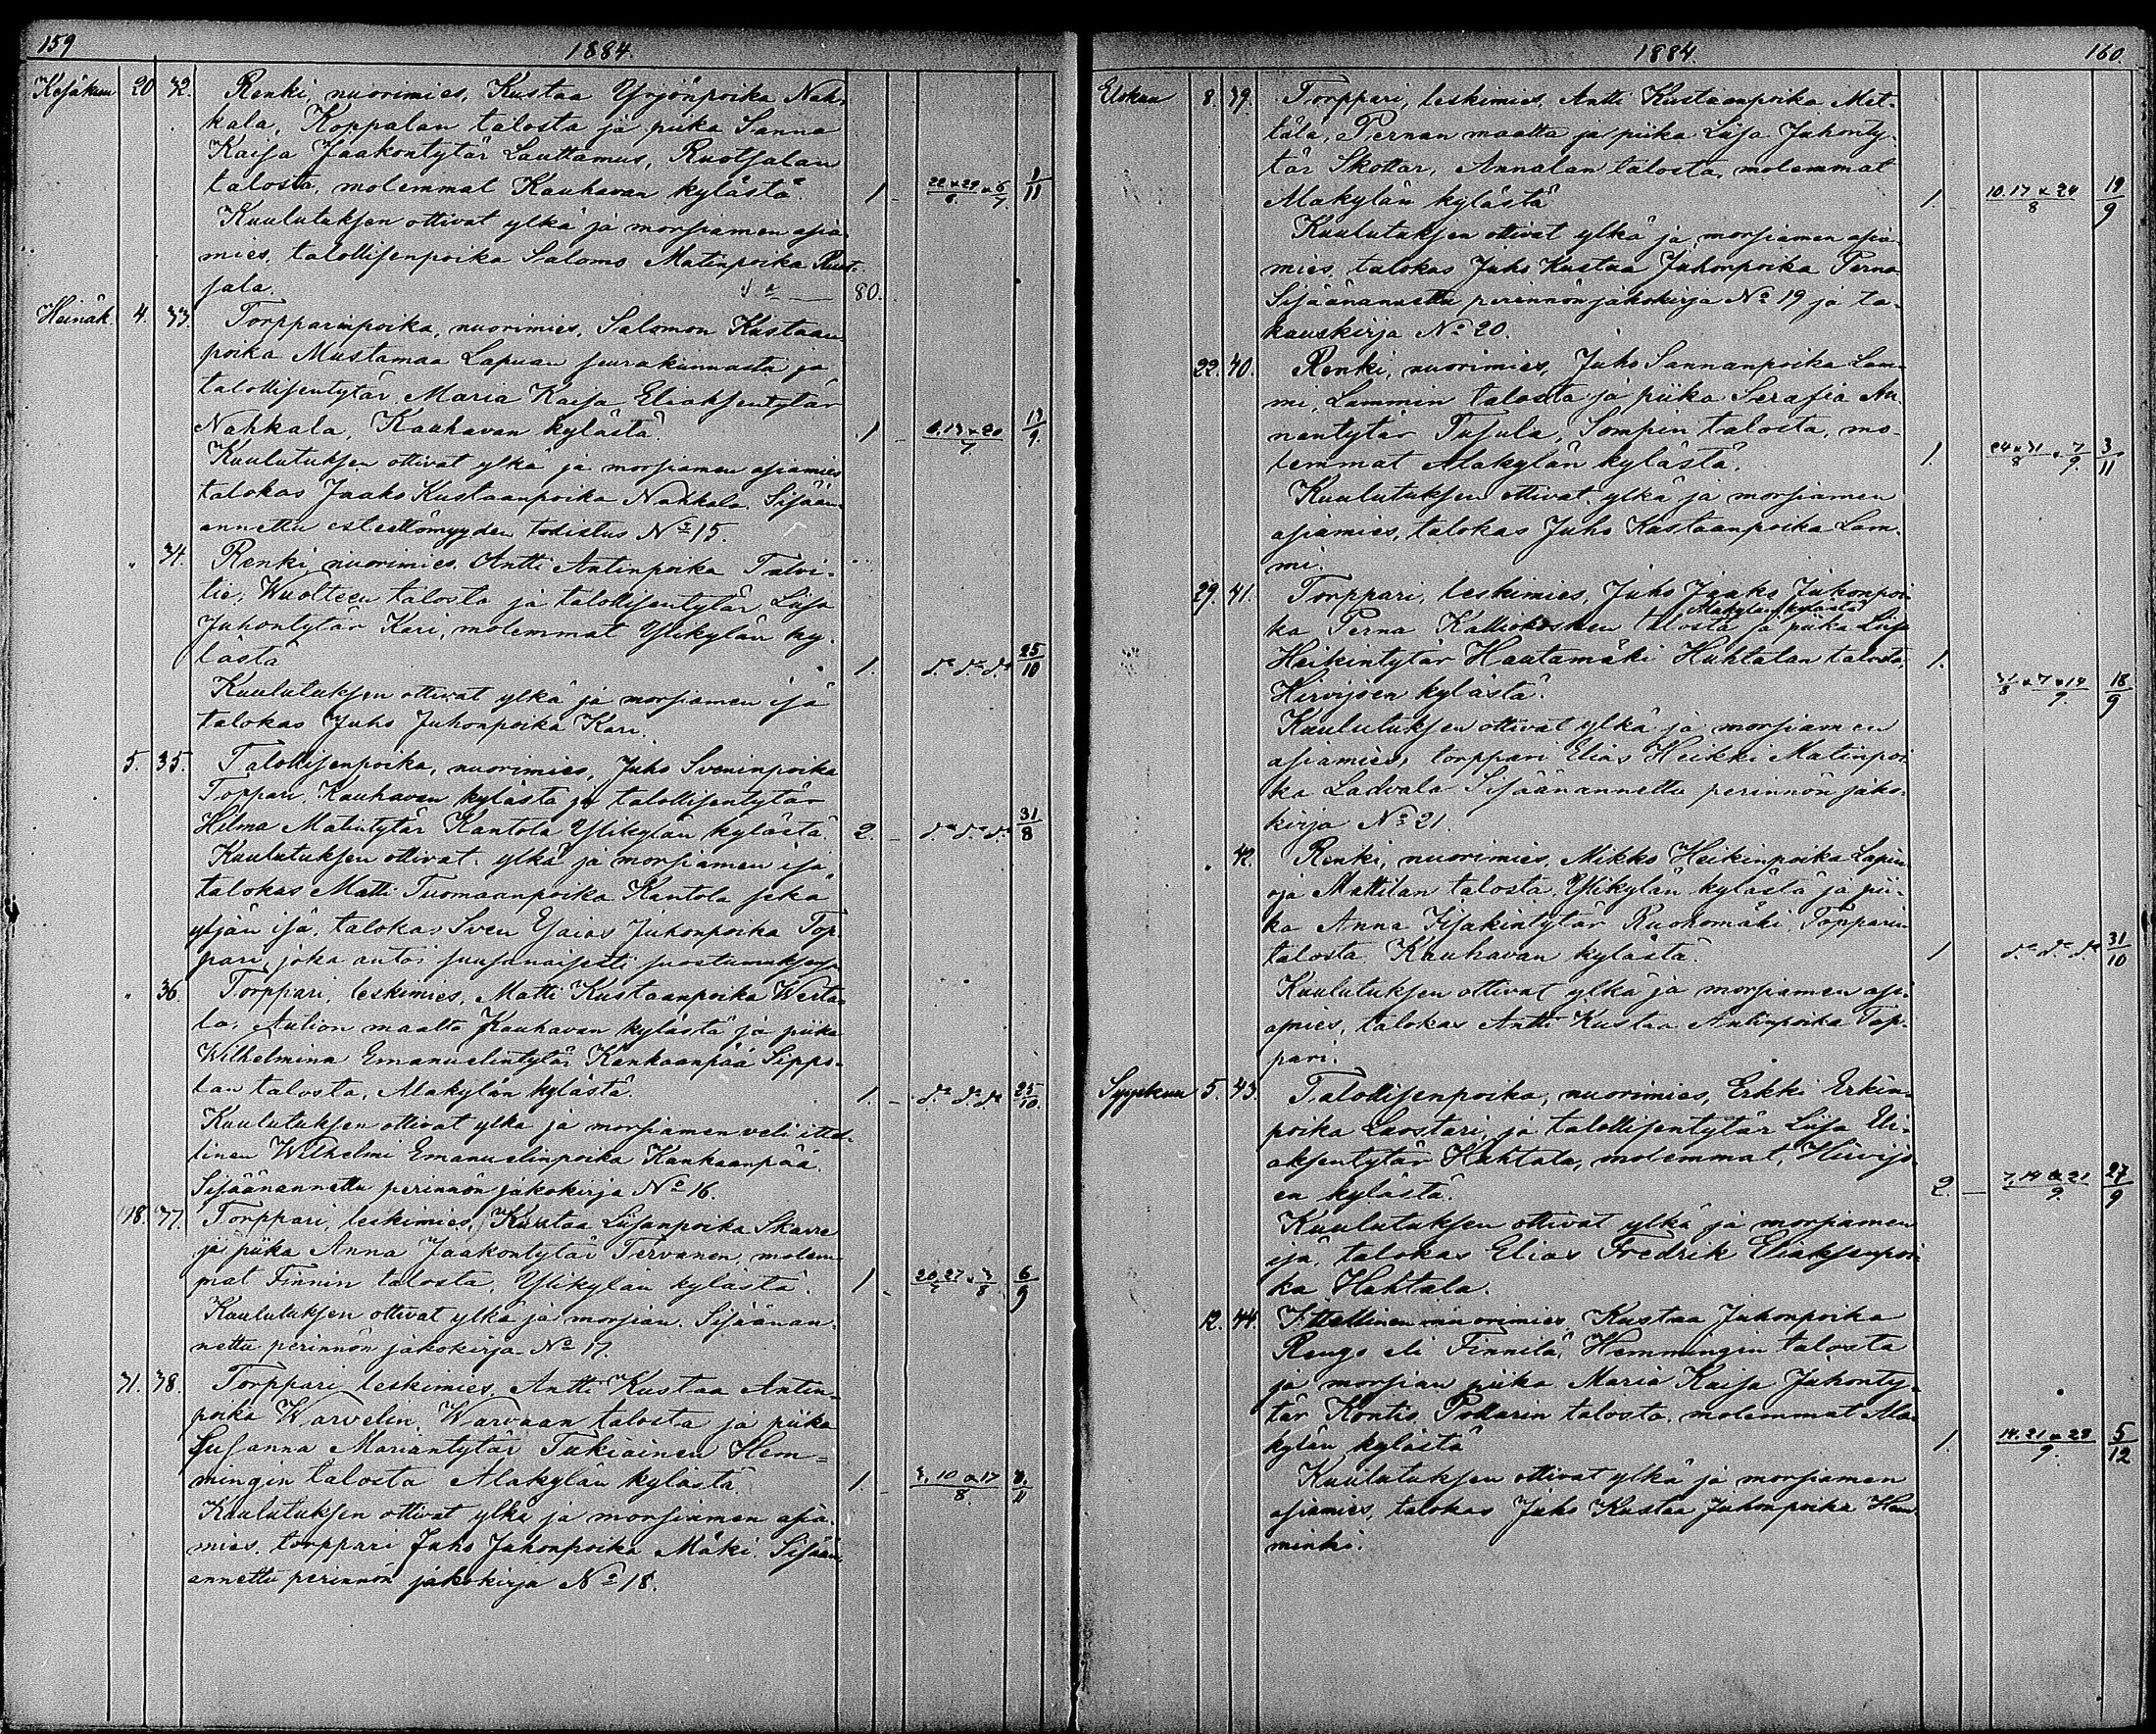 159
1884.
Kesäkuu 20 32. Renki, nuorimies, Kustaa Yrjönpoika Nah-
kala, Koppalan talosta ja piika Sanna
Kaisa Jaakontytär Lauttamus, Ruotsalan
talosta, molemmat Kauhavan kylästä. 1 22 & 29/6 & 6/7 1/11
Kuulutuksen ottivat ylkä ja morsiamen asia-
mies, talollisenpoika Salomo Matinpoika Ruot-
sala. Sa — 80.
Heinäk. 4. 33. Torpparinpoika, nuorimies, Salomon Kustaan-
poika Mustamaa Lapuan seurakunnasta ja
talollisentytär Maria Kaisa Eliaksentytär
Nahkala, Kauhavan kylästä. 1 6.13 & 20/7 13/9.
Kuulutuksen ottivat ylkä ja morsiamen asiamies
talokas Jaako Kustaanpoika Nahkala. Sisään-
annettu esteettömyyden todistus No 15.
" 34. Renki, nuorimies Antti Antinpoika Talvi-
tie, Wuolteen talosta ja talollisentytär Liisa
Juhontytär Kari, molemmat Ylikylän ky-
lästä 1. do do do 25/10
Kuulutuksen ottivat ylkä ja morsiamen isä
talokas Juho Juhonpoika Kari.
5. 35. Talollisenpoika, nuorimies, Juho Sveninpoika
Toppari, Kauhavan kylästä ja talollisentytär
Hilma Matintytär Kantola Ylikylän kylästä. 2. do do do 31/8
Kuulutuksen ottivat ylkä ja morsiamen isä
talokas Matti Tuomaanpoika Kantola sekä
yljän isä, talokas Sven Esaias Juhonpoika Top-
pari, joka antoi suusanaisesti suostumuksensa
" 36. Torppari, leskimies, Matti Kustaanpoika Werta-
la, Aution maalta Kauhavan kylästä ja piika
Wilhelmina Emanuelintytär Kankaanpää Sippo-
lan talosta, Alakylän kylästä. 1. do do do 25/10.
Kuulutuksen ottivat ylkä ja morsiamen veli ittel-
linen Wilhelmi Emanuelinpoika Kankaanpää.
Sisäänannettu perinnön jakokirja No 16.
18. 37. Torppari, leskimies, Kustaa Liisanpoika Skarre
ja piika Anna Jaakontytär Tervanen, molem-
mat Finnin talosta, Ylikylän kylästä. 1 20, 27/7 & 3/8 6/9
Kuulutuksen ottivat ylkä ja morsian. Sisäänan-
nettu perinnön jakokirja No 17.
31. 38. Torppari, leskimies, Antti Kustaa Antin-
poika Warvelin, Warvaan talosta ja piika
Susanna Mariantytär Tukiainen Hem-
mingin talosta Alakylän kylästä. 1. 3, 10 & 17/8. 8./11
Kuulutuksen ottivat ylkä ja morsiamen asia-
mies, torppari Juho Juhonpoika Mäki. Sisään-
annettu perinnön jakokirja No 18.
1884.
160.
Elokuu 8. 39. Torppari, leskimies, Antti Kustaanpoika Met-
tälä, Pernan maalta ja piika Liisa Juhonty-
tär Skottar, Annalan talosta, molemmat
Alakylän kylästä 1. 10. 17 & 24/8 19/9
Kuulutuksen ottivat ylkä ja morsiamen asia-
mies, talokas Juho Kustaa Juhonpoika Perna
Sisäänannettu perinnön jakokirja No 19 ja ta-
kauskirja No 20.
22. 40. Renki, nuorimies, Juho Sannanpoika Lam-
mi, Lammin talosta ja piika Serafia An-
nantytär Tusula, Sompin talosta, mo-
lemmat Alakylän kylästä. 1. 24 & 31/8 & 7/9. 3/11
Kuulutuksen ottivat ylkä ja morsiamen
asiamies, talokas Juho Kustaanpoika Lam-
mi.
29. 41. Torppari, leskimies, Juho Jaako Juhonpoi-
Alakylän kylästä
ka Perna Kalliokosken talosta ja piika Liisa
Heikintytär Hautamäki Huhtalan talosta, 1.
Hirvijoen kylästä. 31/8 & 7 & 14/9. 18/9
Kuulutuksen ottivat ylkä ja morsiamen
asiamies, torppari Elias Heikki Matinpoi-
ka Ladvala Sisäänannettu perinnön jako-
kirja No 21.
" 42. Renki, nuorimies, Mikko Heikinpoika Lapin-
oja Mattilan talosta, Ylikylän kylästä ja pii-
ka Anna Iisakintytär Ruohomäki, Topparin
talosta Kauhavan kylästä. 1 do do do 31/10
Kuulutuksen ottivat ylkä ja morsiamen asi-
amies, talokas Antti Kustaa Antinpoika Top-
pari.
Syyskuu 5. 43. Talollisenpoika, nuorimies, Erkki Erkin-
poika Luostari, ja talollisentytär Liisa Eli-
aksentytär Huhtala, molemmat, Hirvijo-
en kylästä. 2. 7, 14 & 21/9 27/9
Kuulutuksen ottivat ylkä ja morsiamen
isä, talokas Elias Fredrik Eliaksenpoi-
ka Huhtala.
12. 44. Ittellinen nuorimies Kustaa Juhonpoika
Rengo eli Finnilä, Hemmingin talosta
ja morsian piika Maria Kaisa Juhonty-
tär Kontis Pollarin talosta, molemmat Ala-
kylän kylästä 1. 14. 21 & 28/9. 5/12
Kuulutuksen ottivat ylkä ja morsiamen
asiamies, talokas Juho Kustaa Juhonpoika Hem-
minki.